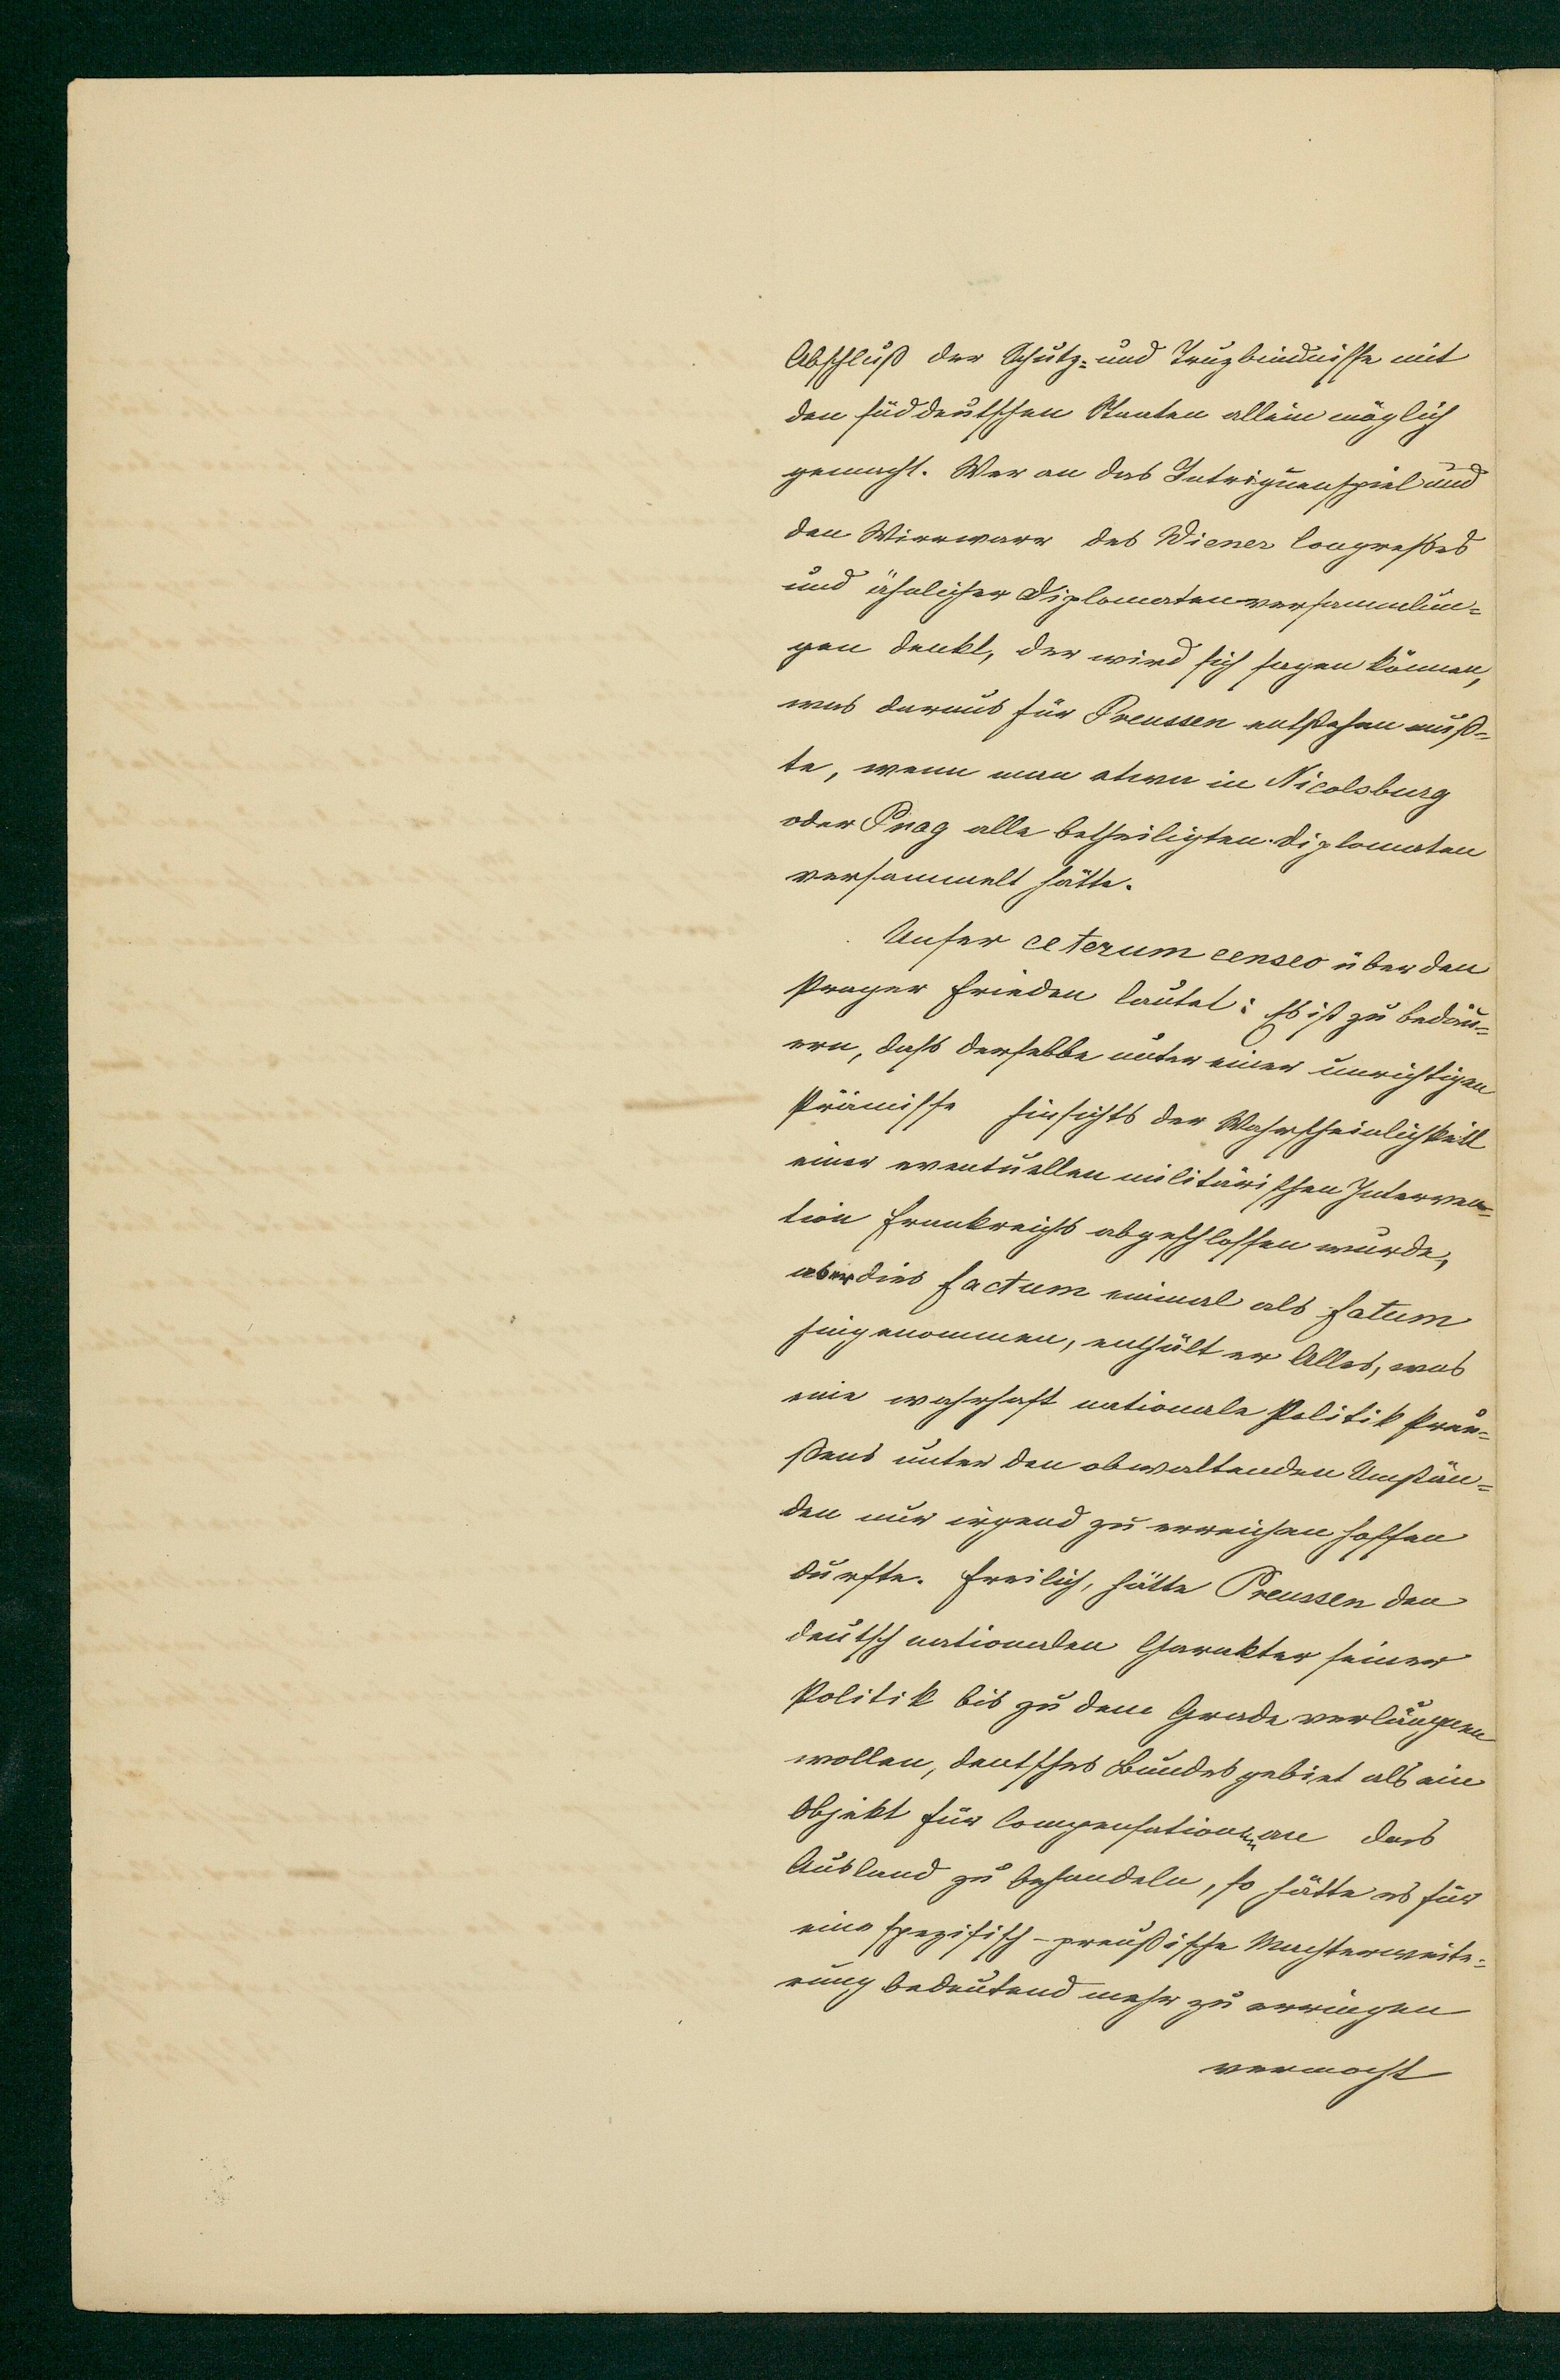 Abschluß der Schutz- und Truzbündnisse mit
den süddeutschen Staaten allein möglich
gemacht. Wer an das Intriguenspiel und
den Wirrwarr des Wiener Congreßes
und ähnlicher Diplomatenversammlun-
gen denkt, der wird sich sagen können,
was daraus für Preussen entstehen muß-
te, wenn man etwa in Nicolsburg
oder Prag alle betheiligten Diplomaten
versammelt hätte.
Unser ceterum censeo über den
Prager Frieden lautet: Es ist zu bedau-
ern, daß derselbe unter einer unrichtigen
Prämisse hinsichts der Wahrscheinlichkeit
einer eventuellen militärischen Interven-
tion Frankreichs abgeschlossen wurde,
aber dies factum einmal als fatum
hingenommen, enthält er Alles, was
eine wahrhaft nationale Politik Preu-
ßens unter den obwaltenden Umstän-
den nur irgend zu erreichen hoffen
durfte. Freilich, hätte Preussen den
deutsch nationalen Charakter seiner
Politik bis zu dem Grade verläugnen
wollen, deutsches Bundesgebiet als ein
Objekt für Compensationen an das
Ausland zu behandeln, so hätte es für
eine spezifisch-preußische Machterweite-
rung bedeutend mehr zu erringen
vermocht